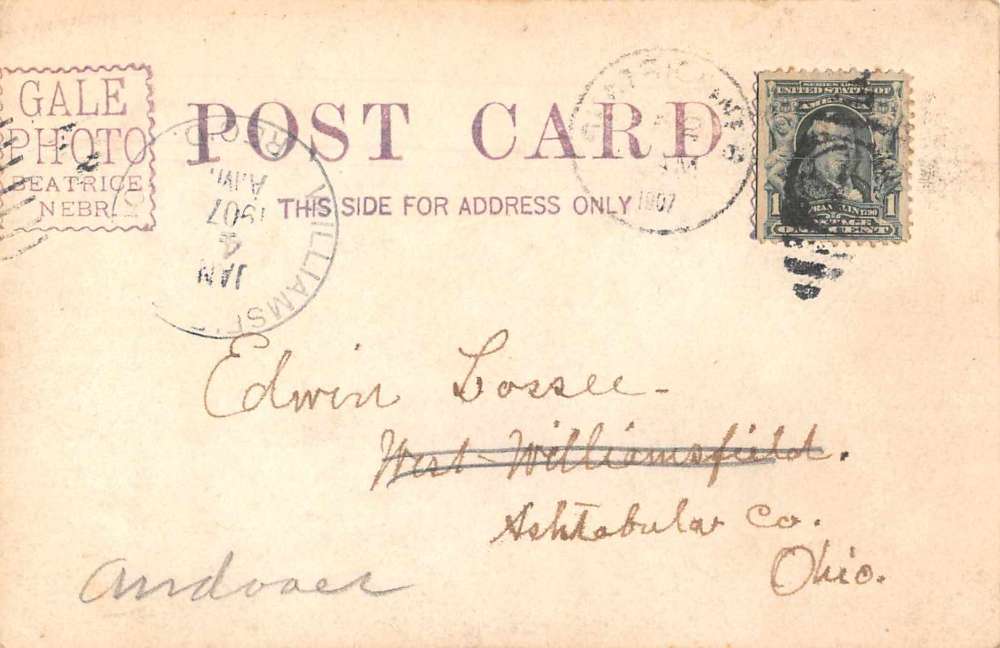 GALE
PHOTO
BEATRICE
NEBR.
POST CARD
THIS SIDE FOR ADDRESS ONLY
WILLIAMSFI
JAN
4
1907
A.M.
REC'D
1907
SERIES 1902
UNITED STATES OF AMERICA
FRANKLIN
1 1
POSTAGE
ONE CENT
Edwin Lossee -
West Williamsfield.
Ashtabula Co.
Ohio.
Andover